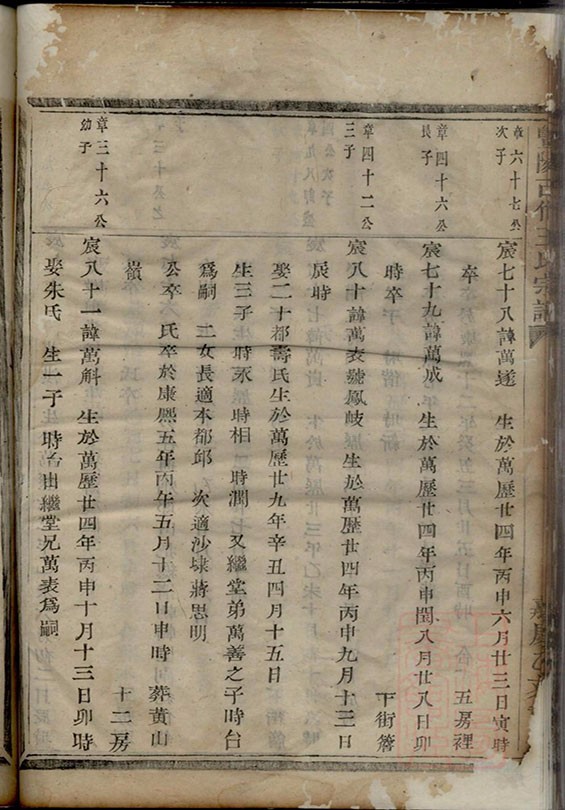 章六十七公
次子
宸七十八諱萬遂 生於萬歷廿四年丙申六月廿三日寅時
卒 五房裡
章四十六公
長子
宸七十九諱萬成 生於萬歷廿四年丙申閏八月廿八日卯
時卒 下街簷
章四十二公
三子
宸八十諱萬表號鳳岐 生於萬歷廿四年丙申九月十三日
辰時
娶二十都壽氏生於萬歷廿九年辛丑四月十五日
生三子 時永 時相 時潤 又繼堂弟萬善之子時台
為嗣 二女長適本都邱 次適沙埭蔣思明
公卒 氏卒於康熙五年丙午五月十二日申時 葬黃山
嶺 十二房
章三十六公
幼子
宸八十一諱萬斛 生於萬歷廿四年丙申十月十三日卯時
娶朱氏 生一子 時台出繼堂兄萬表為嗣